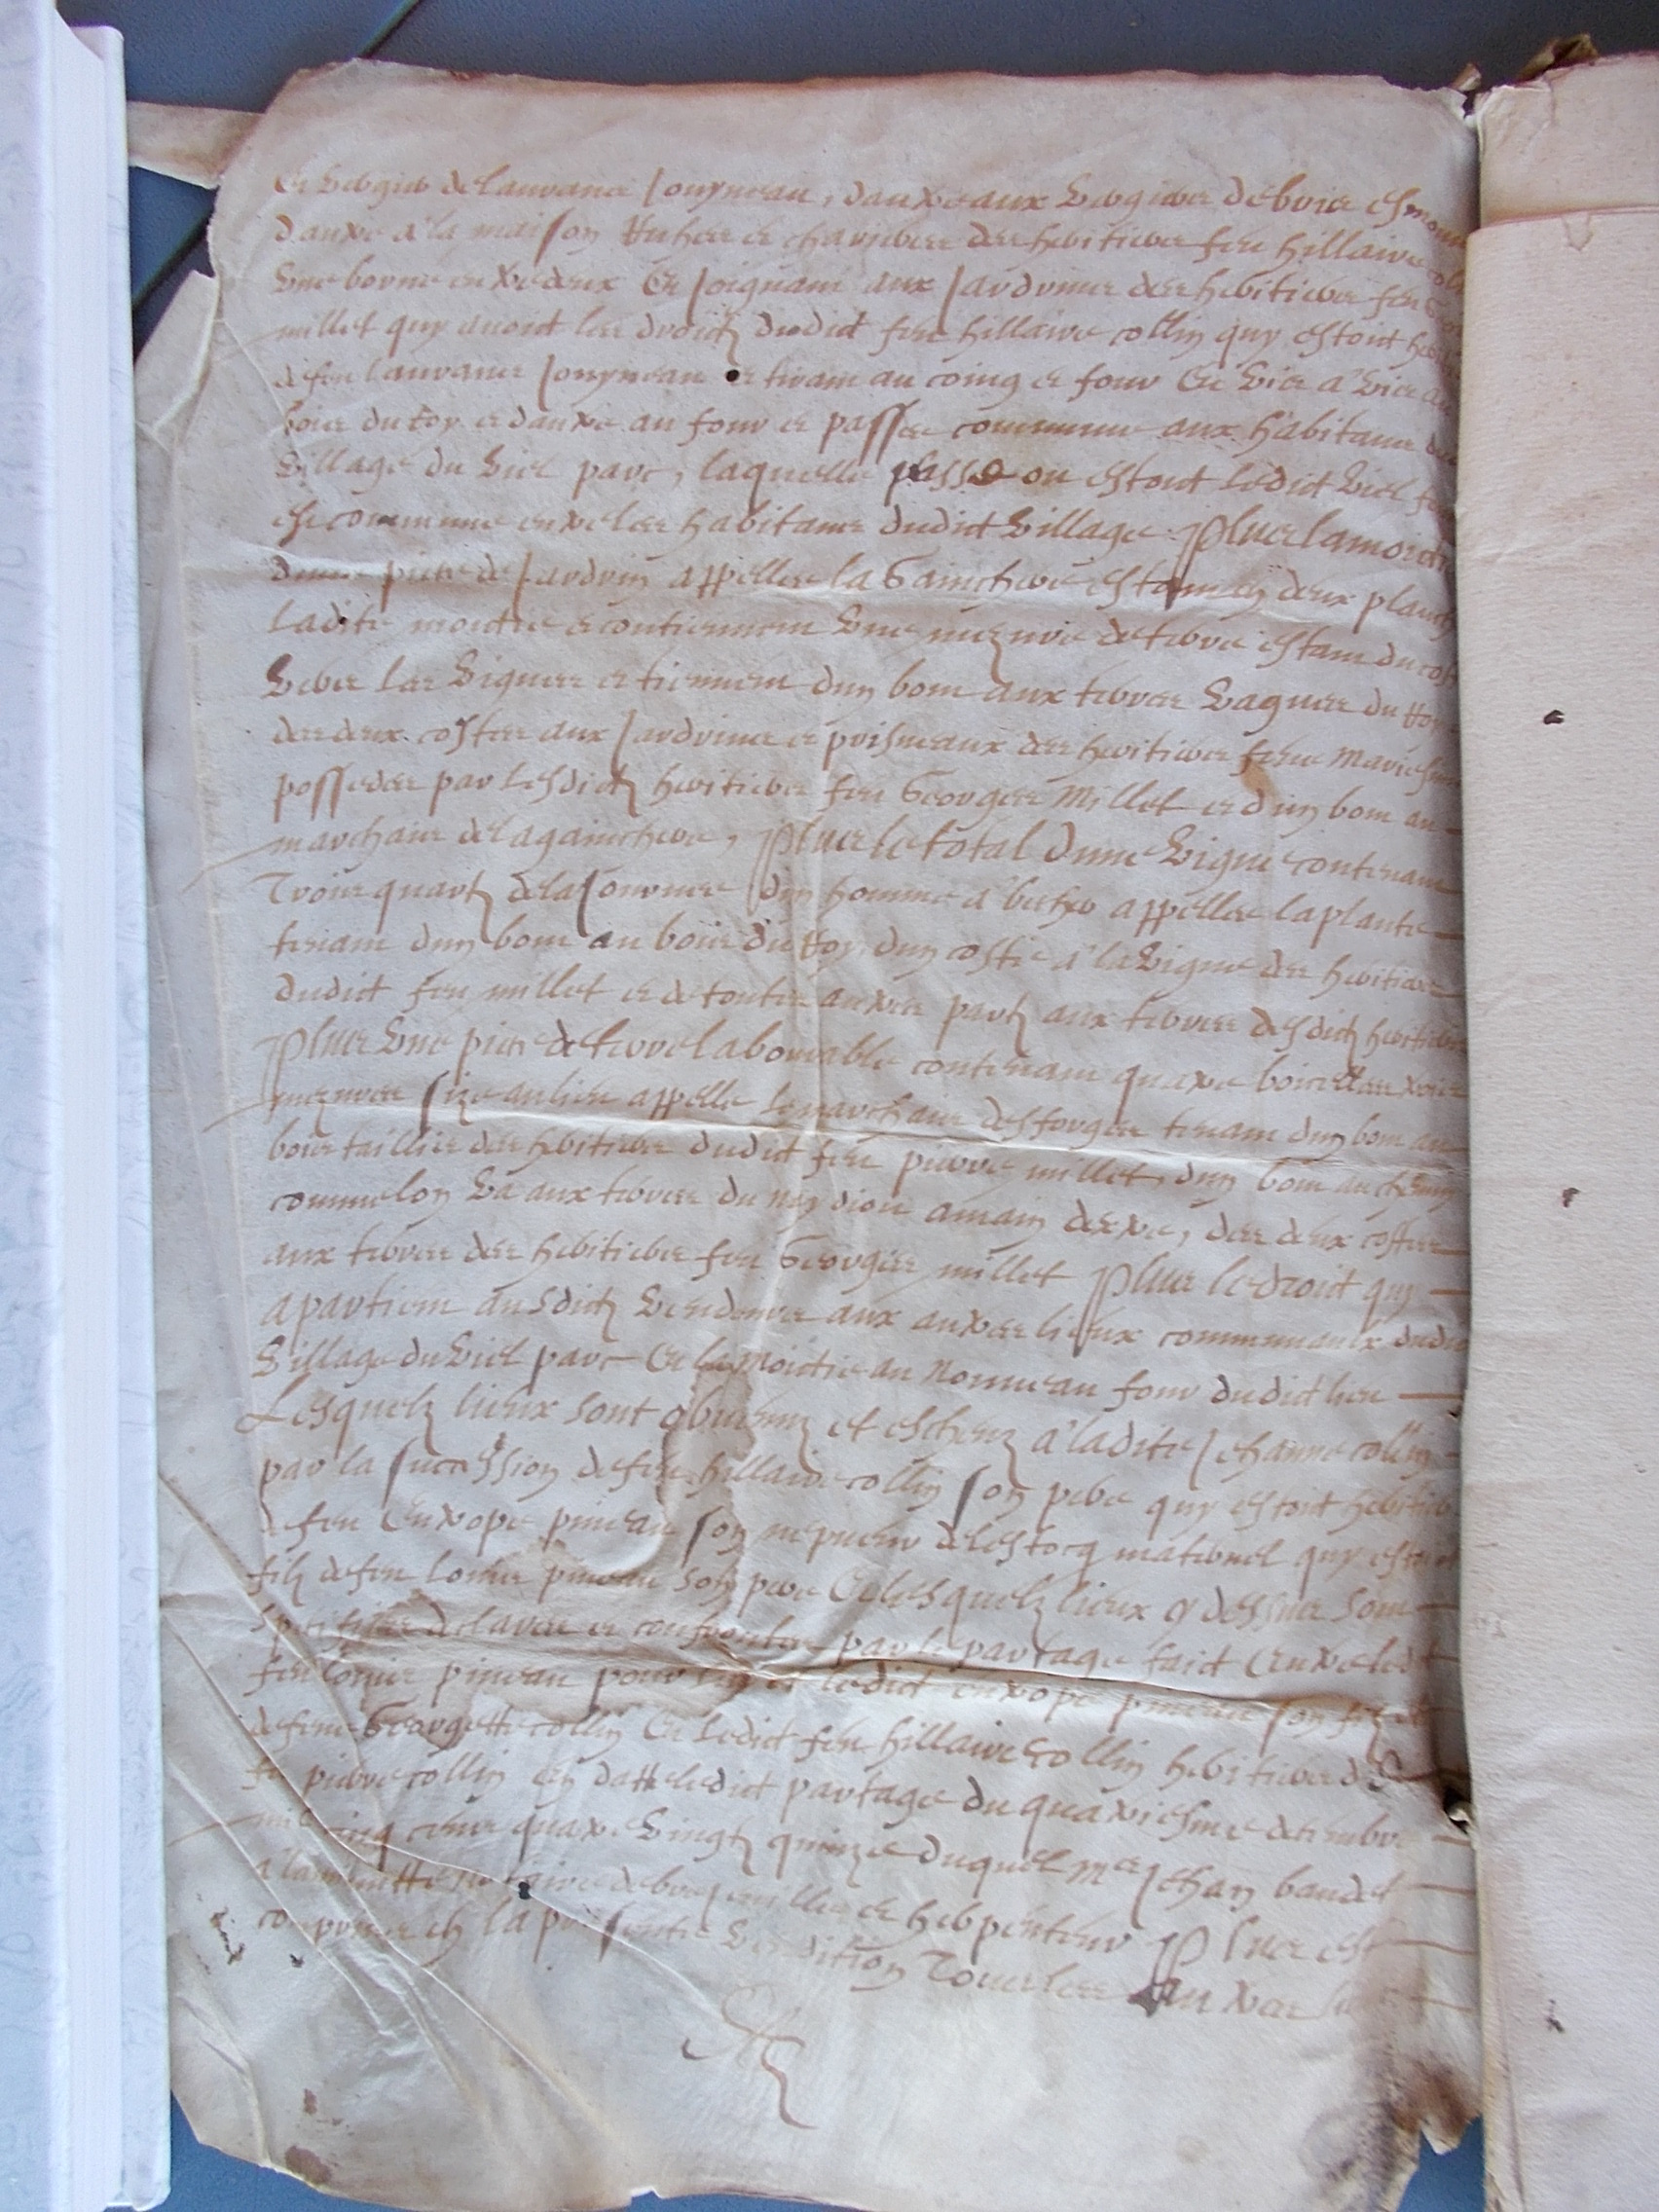 Et vergier de Laurance Jouyneau, d'autre aux vergiers de bois et
d'autre a la maison et des heritiers feu hillaire
une borne entre deux Et joignant aux jardrins des heritiers feu
millet quy avoit les droictz dudict feu hillaire collin quy estoit
de feu laurance Jouyneau et tirant au coing et four Et vier a vier au
bois du roy et d'autre au four et passee commune aux habitans du
village du viel parc, laquelle passe ou estoit ledict viel
est commune entre les habitans dudict village Plus la moictie
d'une piece de jardrin appellee la Gainchere estant en deux
ladite moictie et contiennent une mezure de terre estant du
vers les vignes et tiennent d'un bout aux terres vagues du roy
des deux costez aux jardrins et prisneaux des heritiers feue Marie
possedez par lesdictz heritiers feu Georges Millet et d'un bout au
marchais de la gainchere, Plus le total d'une vigne contenant
Trois quartz de la journee d'un homme a becher appellee la plante
tenant d'un bout au bois du Roy d'un costé a la vigne des heritiers
dudict feu millet et de toutes autres partz aux terres desdictz heritiers
Plus une piece de terre labourable contenant quatre boicellees trois
mezures size au lieu appellé le marchais des forges tenant d'un bout au
bois taillis des heritiers dudict feu pierre millet, d'un bout au chemin
comme l'on va aux terres du a main dextre, des deux costez
aux terres des heritiers feu Georges millet Plus le droit quy
apartient ausdictz vendeurs aux autres lieux communaulx dudit
village du viel parc Et la Moictie au Nouveau four dudict lieu
Lesquelz lieux sont obvenuz et escheuz a ladite Jehanne collin
par la succession de feu hillaire collin son pere quy estoit heritier
de feu Eutrope pineau son nepveu de l'estocq maternel quy estoit
filz de feu Louis pineau son pere Et lesquelz lieux cy dessus sont
speciffiez declarez et confrontez par le partage faict entre ledit
feu Louis pineau pour luy et ledict eutrope pineau son filz et
de feue Georgette collin Et ledict feu hillaire collin heritiers de
feu pierre collin en datte ledict partage du quatriesme decembre
mil cinq cens quatre vingtz quinze duquel Me Jehan baudet
a la minutte notaire de et herpenteur Plus est
comprins en la presente vendition Tous les autres